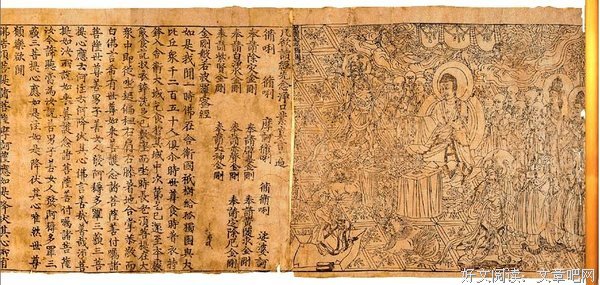 凡欲讀經先念淨口業真言一遍
脩唎 脩唎 摩訶脩唎 脩脩唎 娑婆訶
奉請除災金剛
金剛般若波羅蜜經
如是我聞一時佛在舍衛國祇樹給孤獨園與大
比丘眾千二百五十人俱尒時世尊食時著衣持
鉢入舍衛大城乞食於其城中次第乞已還至本處
飯食訖收衣鉢洗足已敷座而坐時長老須菩提在大
眾中即從座起偏袒右肩右膝著地合掌恭敬而
白佛言希有世尊如來善護念諸菩薩善付囑諸
菩薩世尊善男子善女人發阿耨多羅三藐三菩
提心應云何住云何降伏其心佛言善哉善哉須菩
提如汝所說如來善護念諸菩薩善付囑諸菩薩
汝今諦聽當為汝說善男子善女人發阿耨多羅三
藐三菩提心應如是住如是降伏其心唯然世尊
願樂欲聞
佛告須菩提諸菩薩摩訶薩應如是降伏其心所有
好文阅读：文章吧网